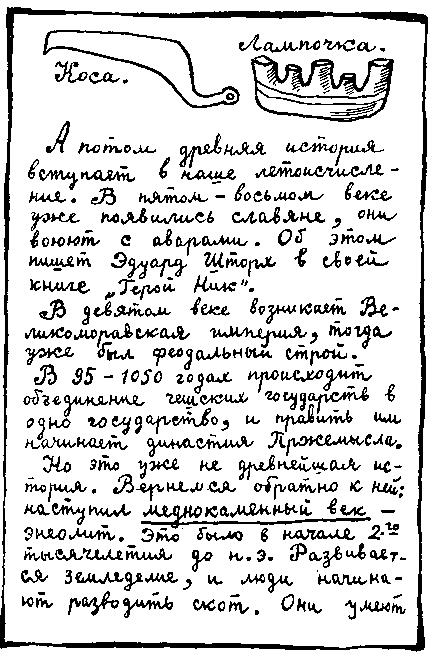 Лампочка.
Коса.
А потом древняя история
вступает в наше летоисчисле-
ние. В пятом - восьмом веке
уже появились славяне, они
воюют с аварами. Об этом
пишет Эдуард Шторх в своей
книге „Герой Ник".
В девятом веке возникает Ве-
ликоморавская империя, тогда
уже был феодальный строй.
В 95 - 1050 годах происходит
объединение чешских государств в
одно государство, и править им
начинает династия Пржемысла.
Но это уже не древнейшая ис-
тория. Вернемся обратно к ней:
наступил меднокаменный век -
энеолит. Это было в начале 2-го
тысячелетия до н.э. Развивает-
ся земледелие, и люди начина-
ют разводить скот. Они умеют